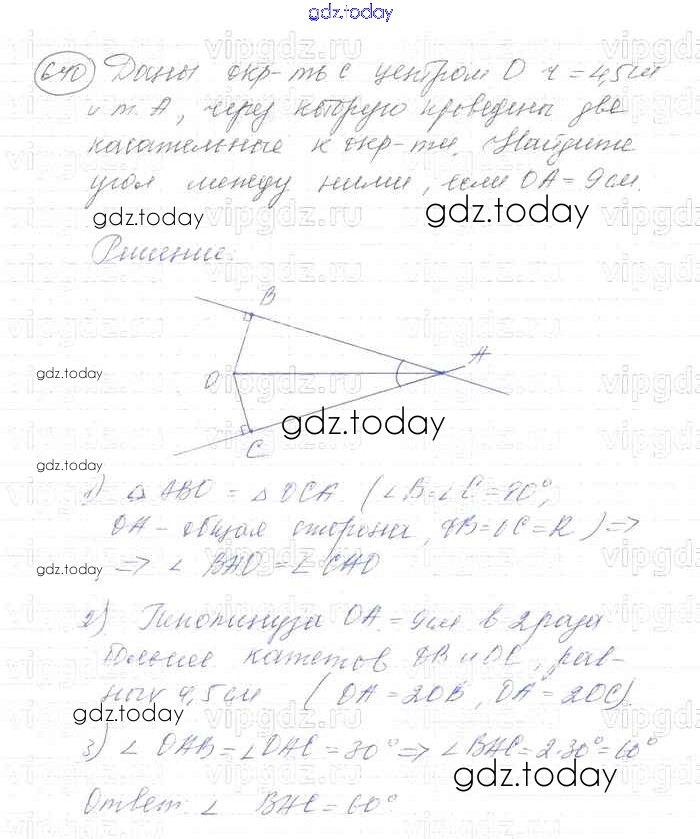 gdz.today
640 Даны окр-ть с центром О r = 4,5 см
и т. А, через которую проведены две
касательные к окр-ти. Найдите
угол между ними, если OA = 9 см.
gdz.today
gdz.today
Решение:
B
gdz.today
O
A
C
gdz.today
gdz.today
1) △ ABO = △ OCA (∠B = ∠C = 90°,
OA - общая сторона, OB = OC = R) =>
gdz.today
=> ∠ BAO = ∠ CAO
2) Гипотенуза OA = 9 см в 2 раза
больше катетов OB и OC, рав-
ных 4,5 см (OA = 2OB, OA = 2OC).
gdz.today
3) ∠ OAB = ∠ OAC = 30° => ∠ BAC = 2·30° = 60°
gdz.today
Ответ: ∠ BAC = 60°.